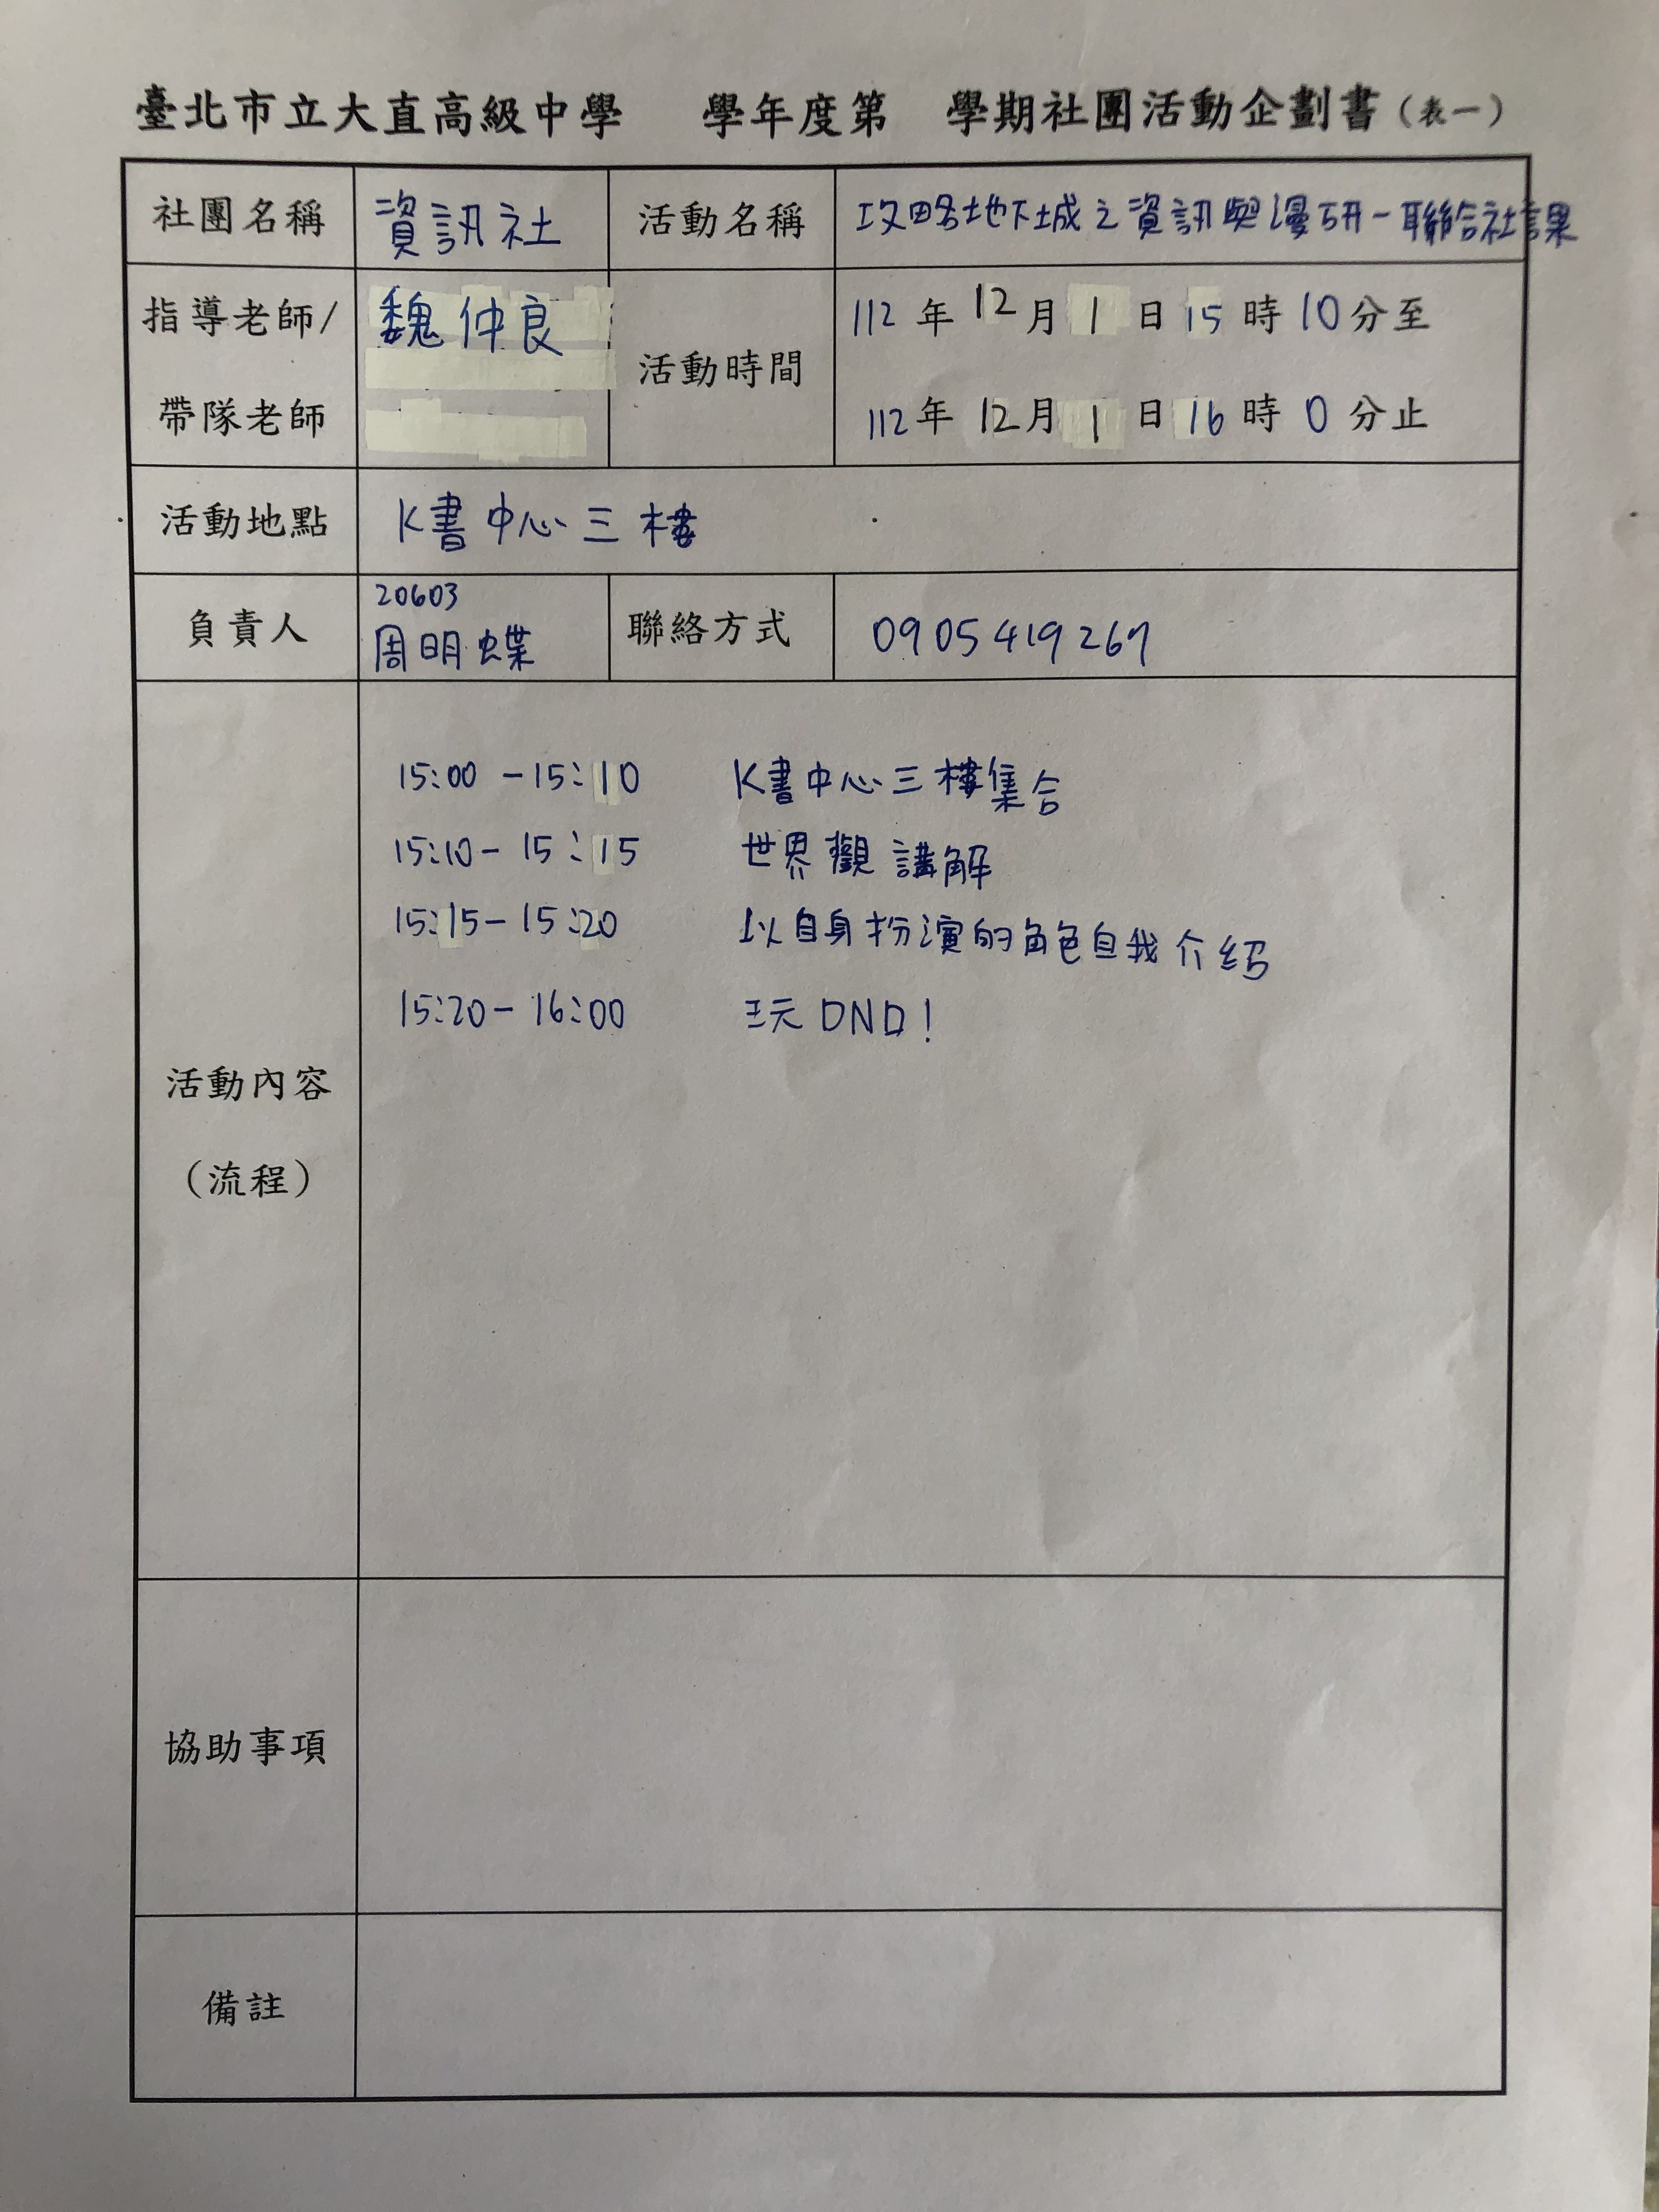 臺北市立大直高級中學 學年度第 學期社團活動企劃書(表一)
社團名稱 資訊社 活動名稱 攻略地下城之資訊與漫研-聯合社課
指導老師/ 魏仲良
帶隊老師
活動時間
112年12月1日15時10分至
112年12月1日16時0分止
活動地點 K書中心三樓
負責人 20603
周明蝶 聯絡方式 0905419267
活動內容
(流程)
15:00-15:10 K書中心三樓集合
15:10-15:15 世界觀講解
15:15-15:20 以自身扮演的角色自我介紹
15:20-16:00 玩DND!
協助事項
備註